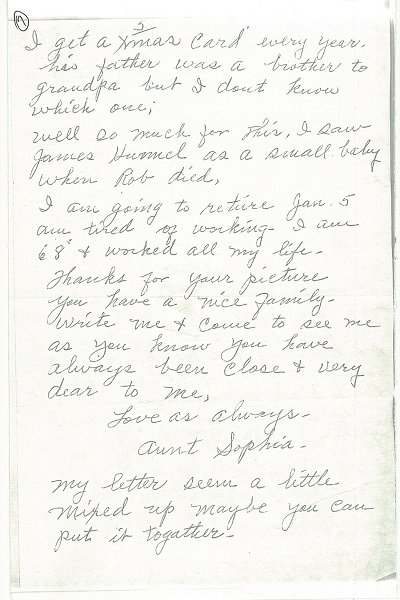 5
I get a Xmas Card every year.
his father was a brother to
grandpa but I dont know
which one;
well so much for this, I saw
James Hummel as a small baby
when Rob died,
I am going to retire Jan. 5
am tired of working - I am
68 & worked all my life -
Thanks for your picture
you have a nice family -
write me & come to see me
as you know you have
always been close & very
dear to me,
Love as always -
Aunt Sophia -
my letter seem a little
mixed up maybe you can
put it togather -